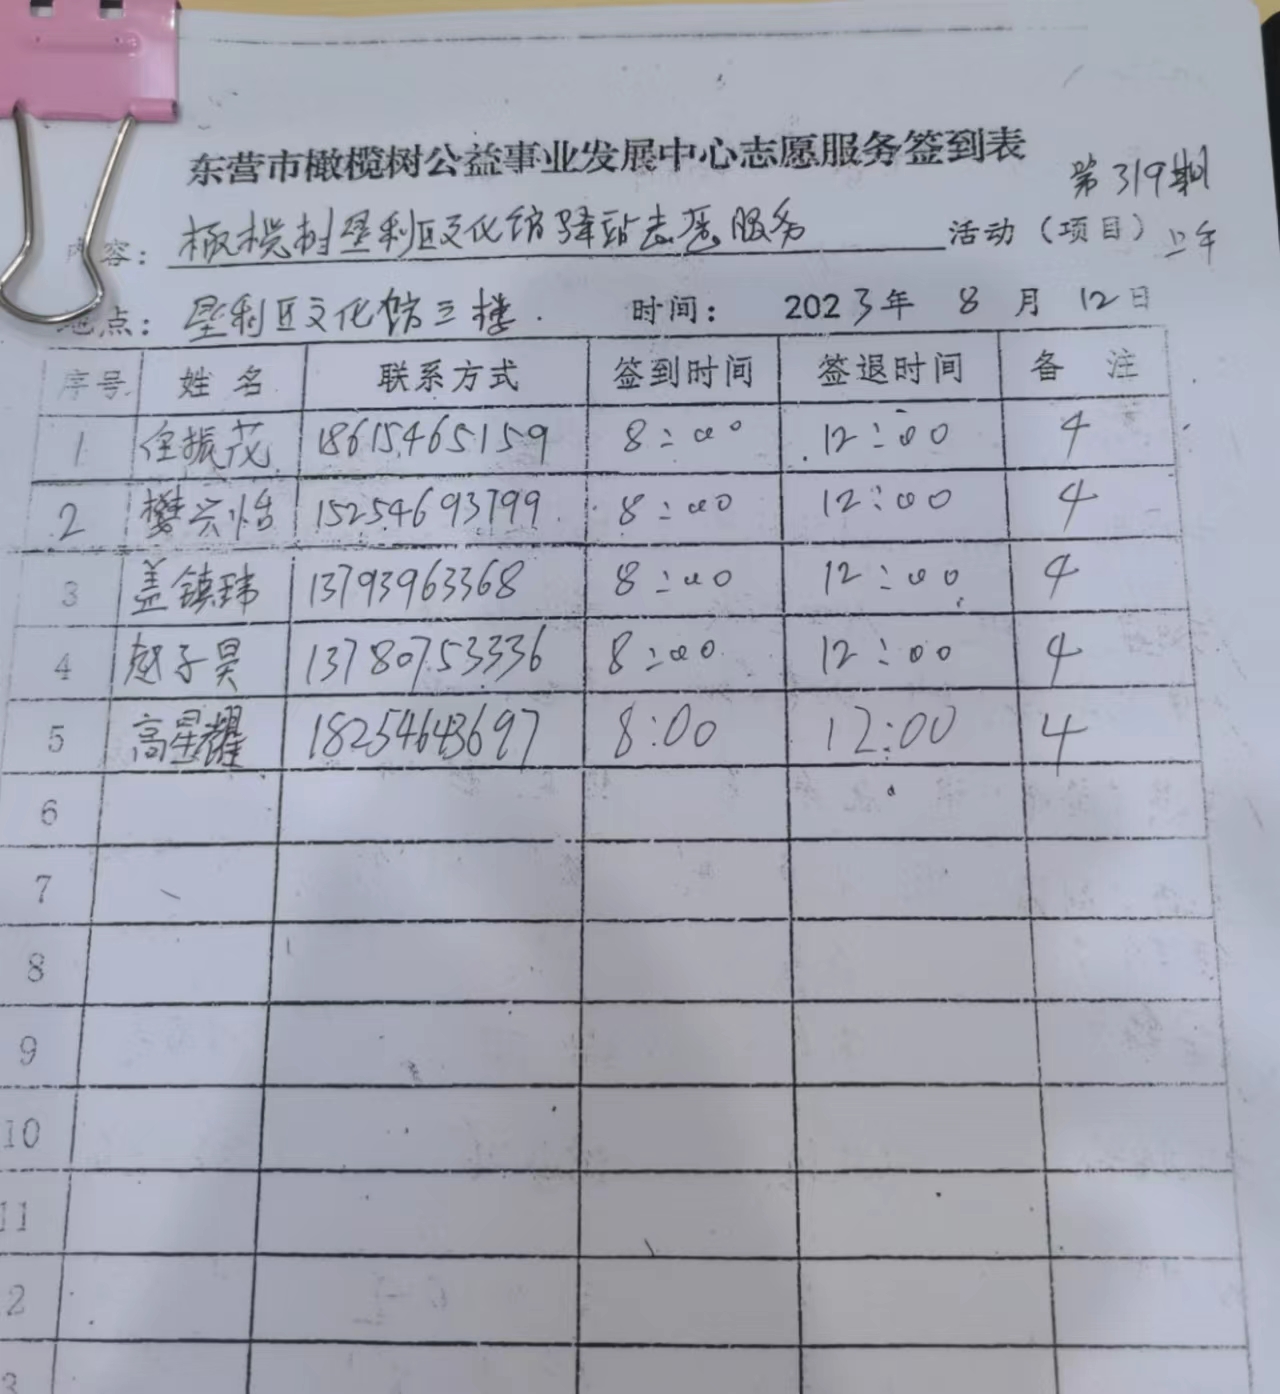 东营市橄榄树公益事业发展中心志愿服务签到表
第319期
内容：橄榄树垦利区文化馆驿站志愿服务 活动（项目）上午
地点：垦利区文化馆三楼. 时间： 2023年 8 月 12日
序号 姓名 联系方式 签到时间 签退时间 备 注
1 任振茂 18615465159 8:00 12:00 4
2 樊兴怡 15254693799 8:00 12:00 4
3 盖镇玮 13793963368 8:00 12:00 4
4 赵子昊 13780753336 8:00 12:00 4
5 高星耀 18254643697 8:00 12:00 4
6
7
8
9
10
11
2
3